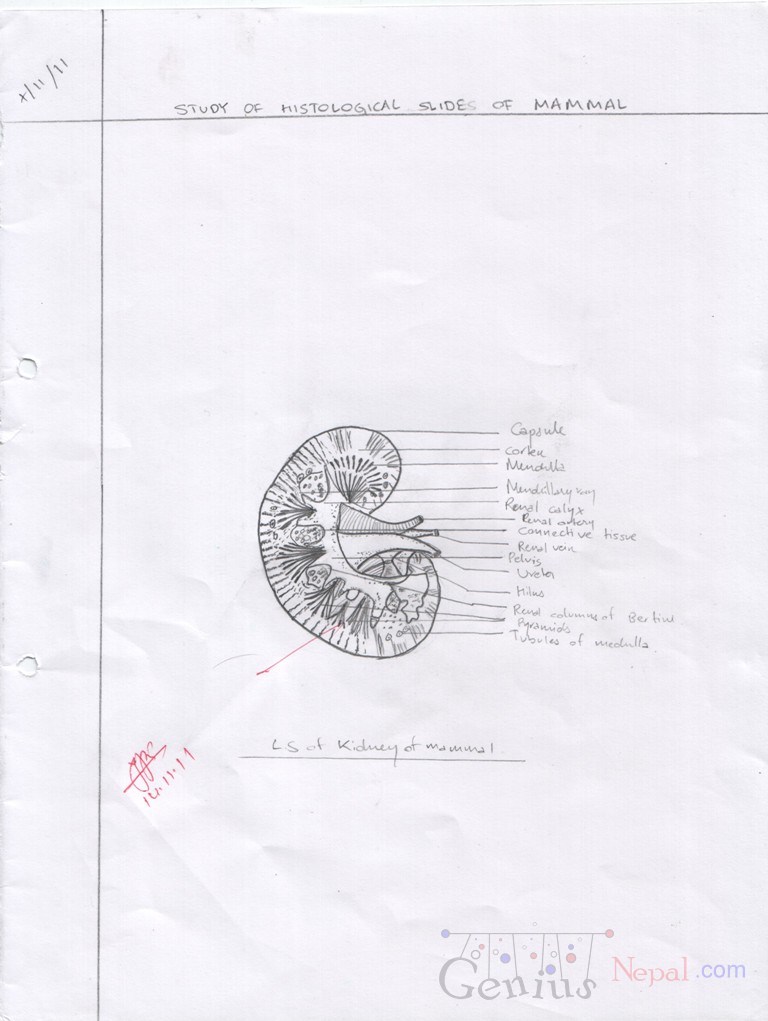 x/11/11
STUDY OF HISTOLOGICAL SLIDES OF MAMMAL
Capsule
Cortex
Mendulla
Mendullary ray
Renal calyx
Renal artery
Connective tissue
Renal vein
Pelvis
Ureter
Hilus
Renal columns of Bertini
Pyramids
Tubules of medulla
L.S of Kidney of mammal
11.11
Genius Nepal.com